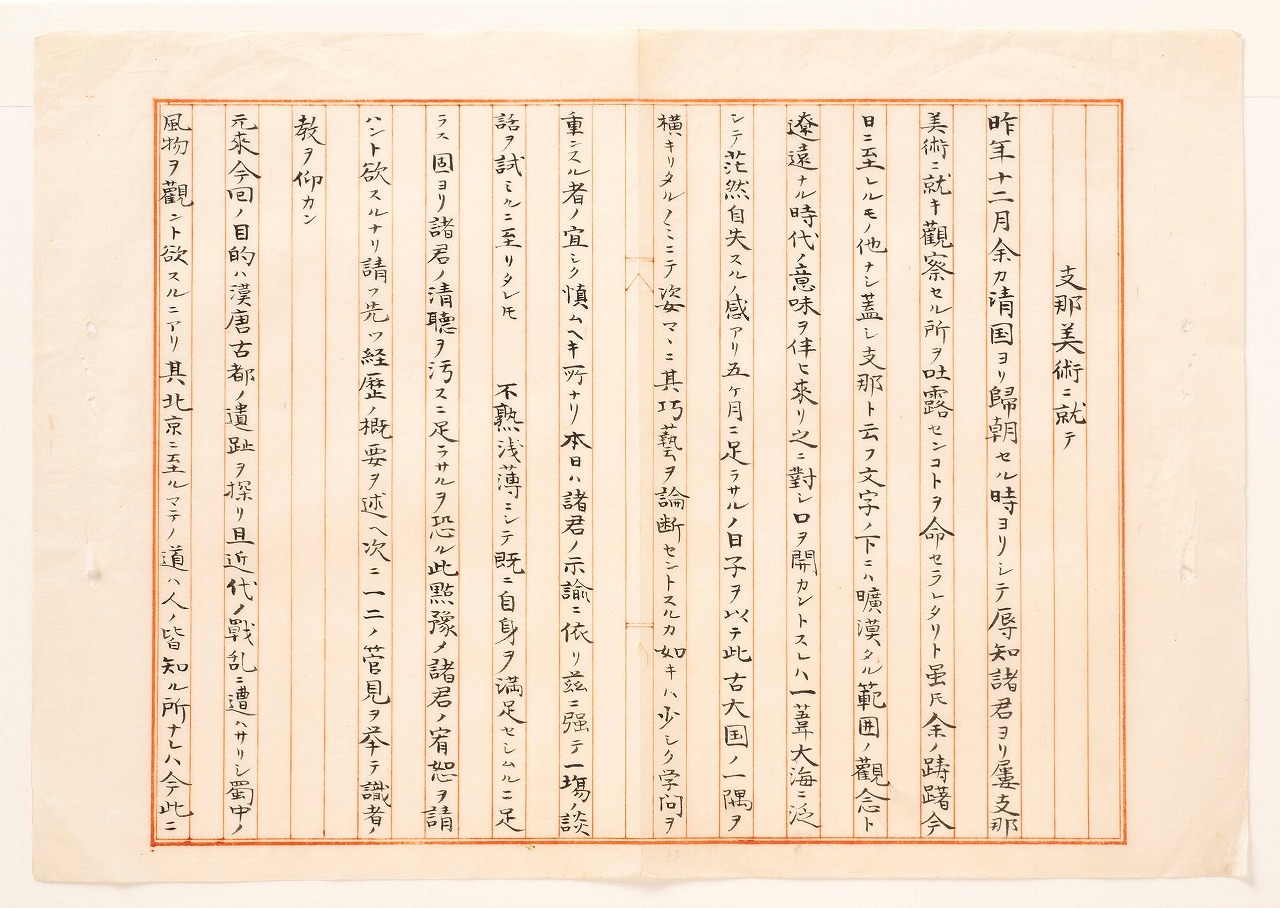 支那美術ニ就テ
昨年十二月余カ清国ヨリ歸朝セル時ヨリシテ辱知諸君ヨリ屢支那
美術ニ就キ觀察セル所ヲ吐露センコトヲ命セラレタリト虽𪜈余ノ躊躇今
日ニ至レルモノ他ナシ蓋シ支那ト云フ文字ノ下ニハ曠漠タル範囲ノ觀念ト
遼遠ナル時代ノ意味ヲ伴ヒ來リ之ニ對シ口ヲ開カントスレハ一葦大海ニ泛
シテ茫然自失スルノ感アリ五ケ月ニ足ラサルノ日子ヲ以テ此古大国ノ一隅ヲ
横キリタルノミニテ姿マヽニ其巧藝ヲ論断セントスルカ如キハ少シク学問ヲ
重ンスル者ノ宜シク慎ムヘキ所ナリ本日ハ諸君ノ示諭ニ依リ茲ニ强テ一塲ノ談
話ヲ試ミルニ至リタレモ 不熟浅薄ニシテ既ニ自身ヲ満足セシムルニ足
ラス固ヨリ諸君ノ清聽ヲ汚スニ足ラサルヲ恐ル此點豫メ諸君ノ宥恕ヲ請
ハント欲スルナリ請フ先ツ経歴ノ概要ヲ述ヘ次ニ一二ノ管見ヲ举テ識者ノ
教ヲ仰カン
元來今回ノ目的ハ漢唐古都ノ遺趾ヲ探リ且近代ノ戰乱ニ遭ハサリシ蜀中ノ
風物ヲ觀ント欲スルニアリ其北京ニ至ルマテノ道ハ人ノ皆知ル所ナレハ今此ニ